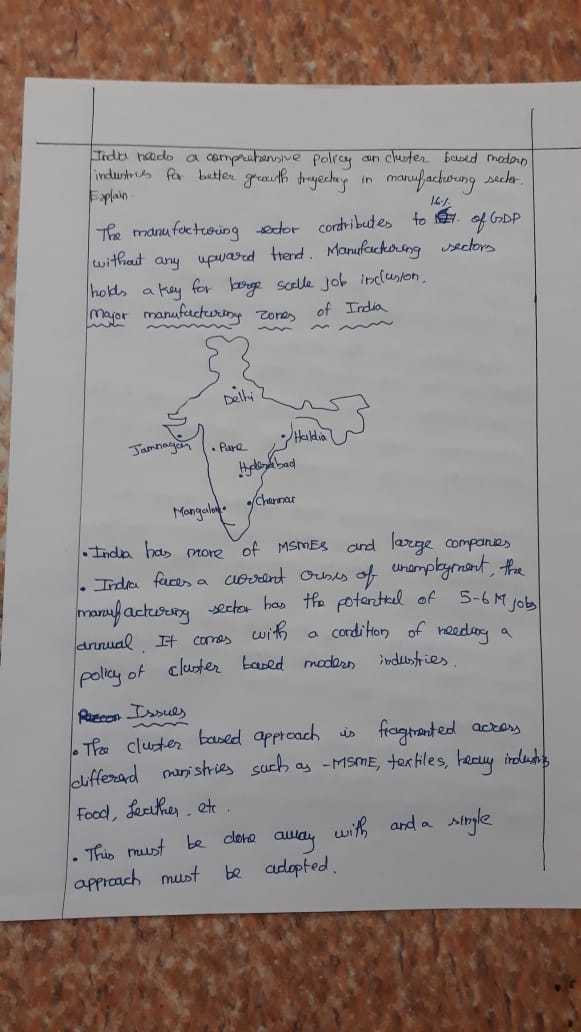 India needs a comprehensive policy on cluster based modern
industries for better growth trajectory in manufacturing sector.
Explain.
16%
The manufacturing sector contributes to of GDP
without any upward trend. Manufacturing sectors
holds a key for large scelle job inclusion.
Major manufacturing zones of India
Delhi
Haldia
Jamnagar
Pune
Hyderabad
Chennai
Mangalore
• India has more of MSMEs and large companies
• India faces a current crisis of unemployment, the
manufacturing sector has the potential of 5-6 M jobs
annual. It comes with a condition of needing a
policy of cluster based modern industries.
Issues
• The cluster based approach is fragmented across
different ministries such as -MSME, textiles, heavy industries
Food, leather, etc.
• This must be done away with and a single
approach must be adopted.